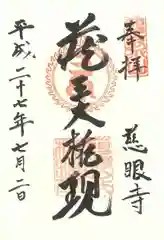 奉拝
蔵王大権現
慈眼寺
平成二十七年七月二日